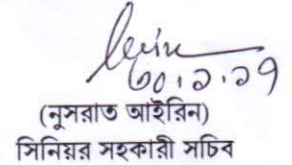 ৩০.১.১৭
(নুসরাত আইরিন)
সিনিয়র সহকারী সচিব